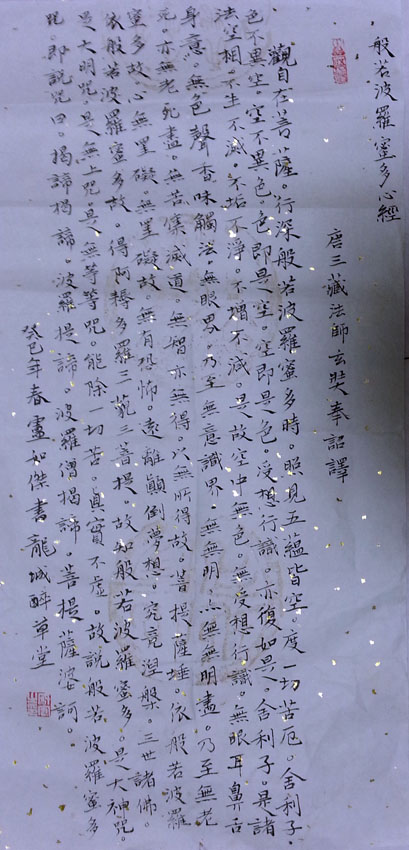 般若波羅蜜多心經
唐三藏法師玄奘奉詔譯
觀自在菩薩。行深般若波羅蜜多時。照見五蘊皆空。度一切苦厄。舍利子。
色不異空。空不異色。色即是空。空即是色。受想行識。亦復如是。舍利子。是諸
法空相。不生不滅。不垢不淨。不增不減。是故空中無色。無受想行識。無眼耳鼻舌
身意。無色聲香味觸法。無眼界。乃至無意識界。無無明。亦無無明盡。乃至無老
死。亦無老死盡。無苦集滅道。無智亦無得。以無所得故。菩提薩埵。依般若波羅
蜜多故。心無罣礙。無罣礙故。無有恐怖。遠離顛倒夢想。究竟涅槃。三世諸佛。
依般若波羅蜜多故。得阿耨多羅三藐三菩提。故知般若波羅蜜多。是大神咒。
是大明咒。是無上咒。是無等等咒。能除一切苦。真實不虛。故說般若波羅蜜多
咒。即說咒曰。揭諦揭諦。波羅提諦。波羅僧揭諦。菩提薩婆訶。
癸巳年春盧如傑書龍城醉草堂